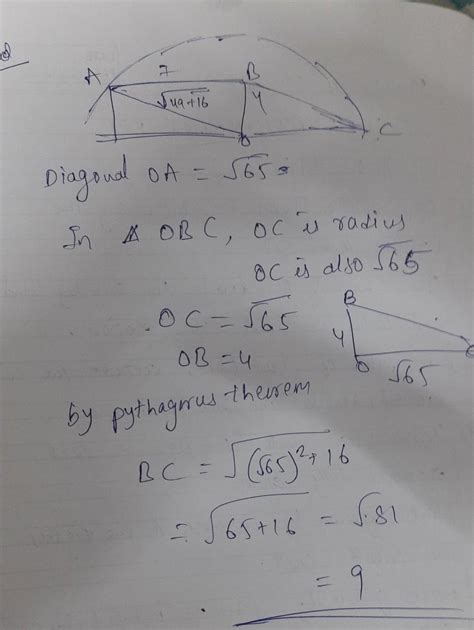 A 7 B
√49+16 4
O C
Diagonal OA = √65
In Δ OBC, OC is radius
OC is also √65
OC = √65
OB = 4
B
4
O √65 C
by pythagrus theorem
BC = √(√65)²+16
= √65+16 = √81
= 9